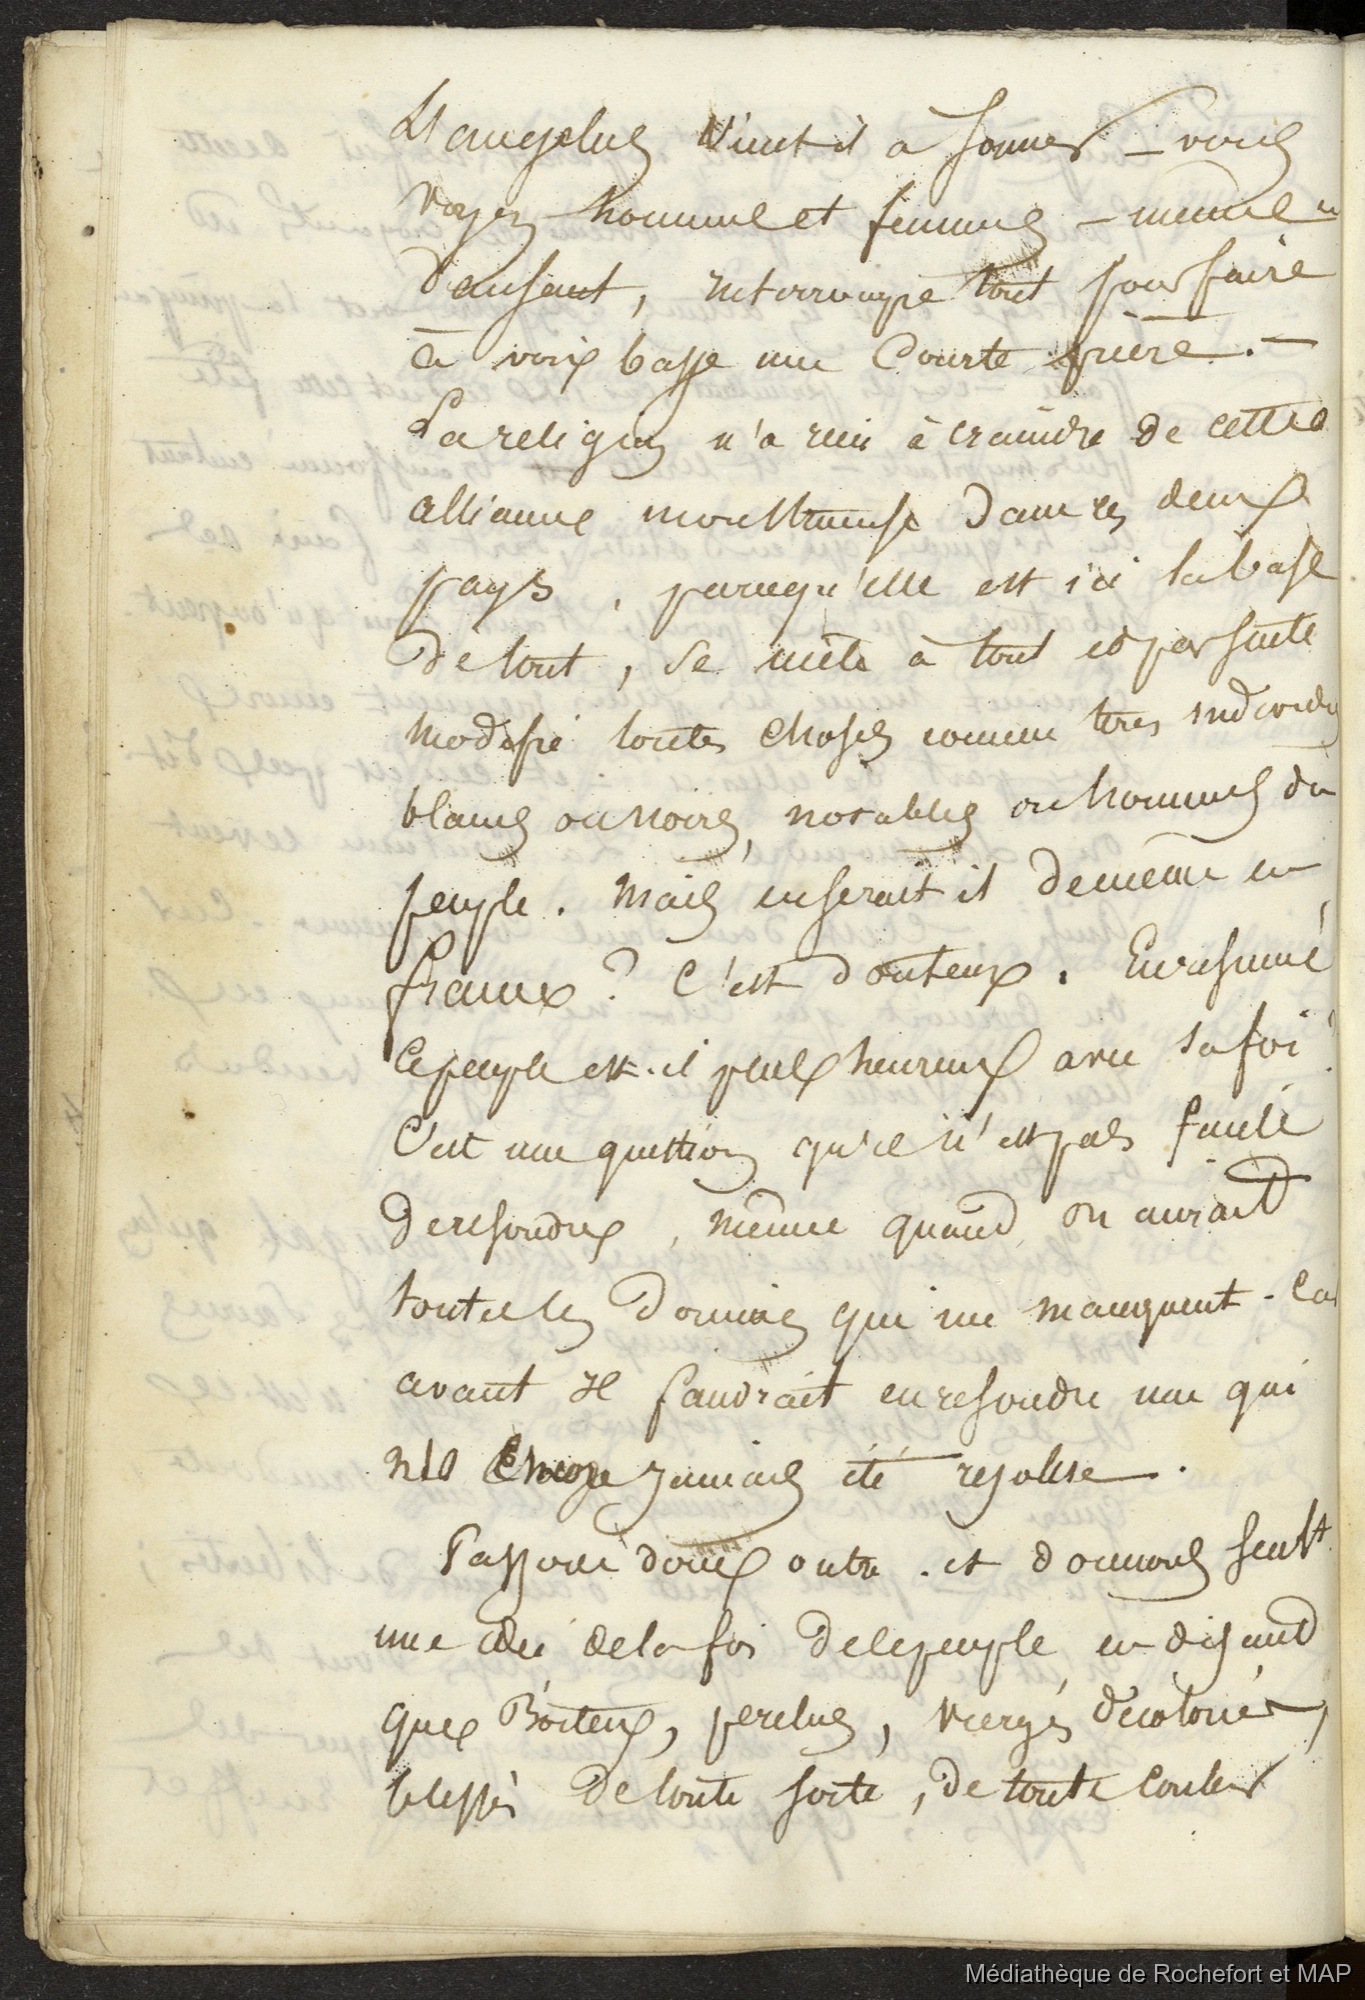 L'angelus vient il à sonner – vous
voyez homme et femmes – même
d'enfant, interrompre tout pour faire
à voix basse une courte prière. –
La religion n'a rien à craindre de cette
alliance monstrueuse dans ces deux
pays, parcequ'elle est ici la base
de tout, se mêle à tout et par suite
modifie toutes choses comme tous individus
blancs ou noirs, notables ou hommes du
peuple. Mais en serait il de même en
france? C'est douteux. En resumé
ce peuple est-il plus heureux avec sa foi?
C'est une question qu'il n'est pas facile
de resoudre, même quand on aurait
toutes les données qui me manquent. Car
avant il faudrait en resoudre une qui
n'a encore jamais été resolue.
Passons donc outre. et donnons seult
une idée de la foi de le peuple en disant
que Boiteux, perclus, vierges décolorées,
blessés de toute sorte, de toute couleur
Médiathèque de Rochefort et MAP